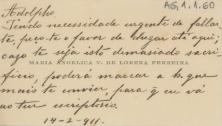 AG,A.1.60
Adolpho
Tendo necessidade urgente de fallar
te, peço-te o favor de chegar até aqui;
caso te seja isto demasiado sacri
MARIA ANGELICA V. DE LORENA FERREIRA
ficio, poderá marcar a h. que
mais te convier, para q eu vá
ao teu escriptorio.
14-2-911.